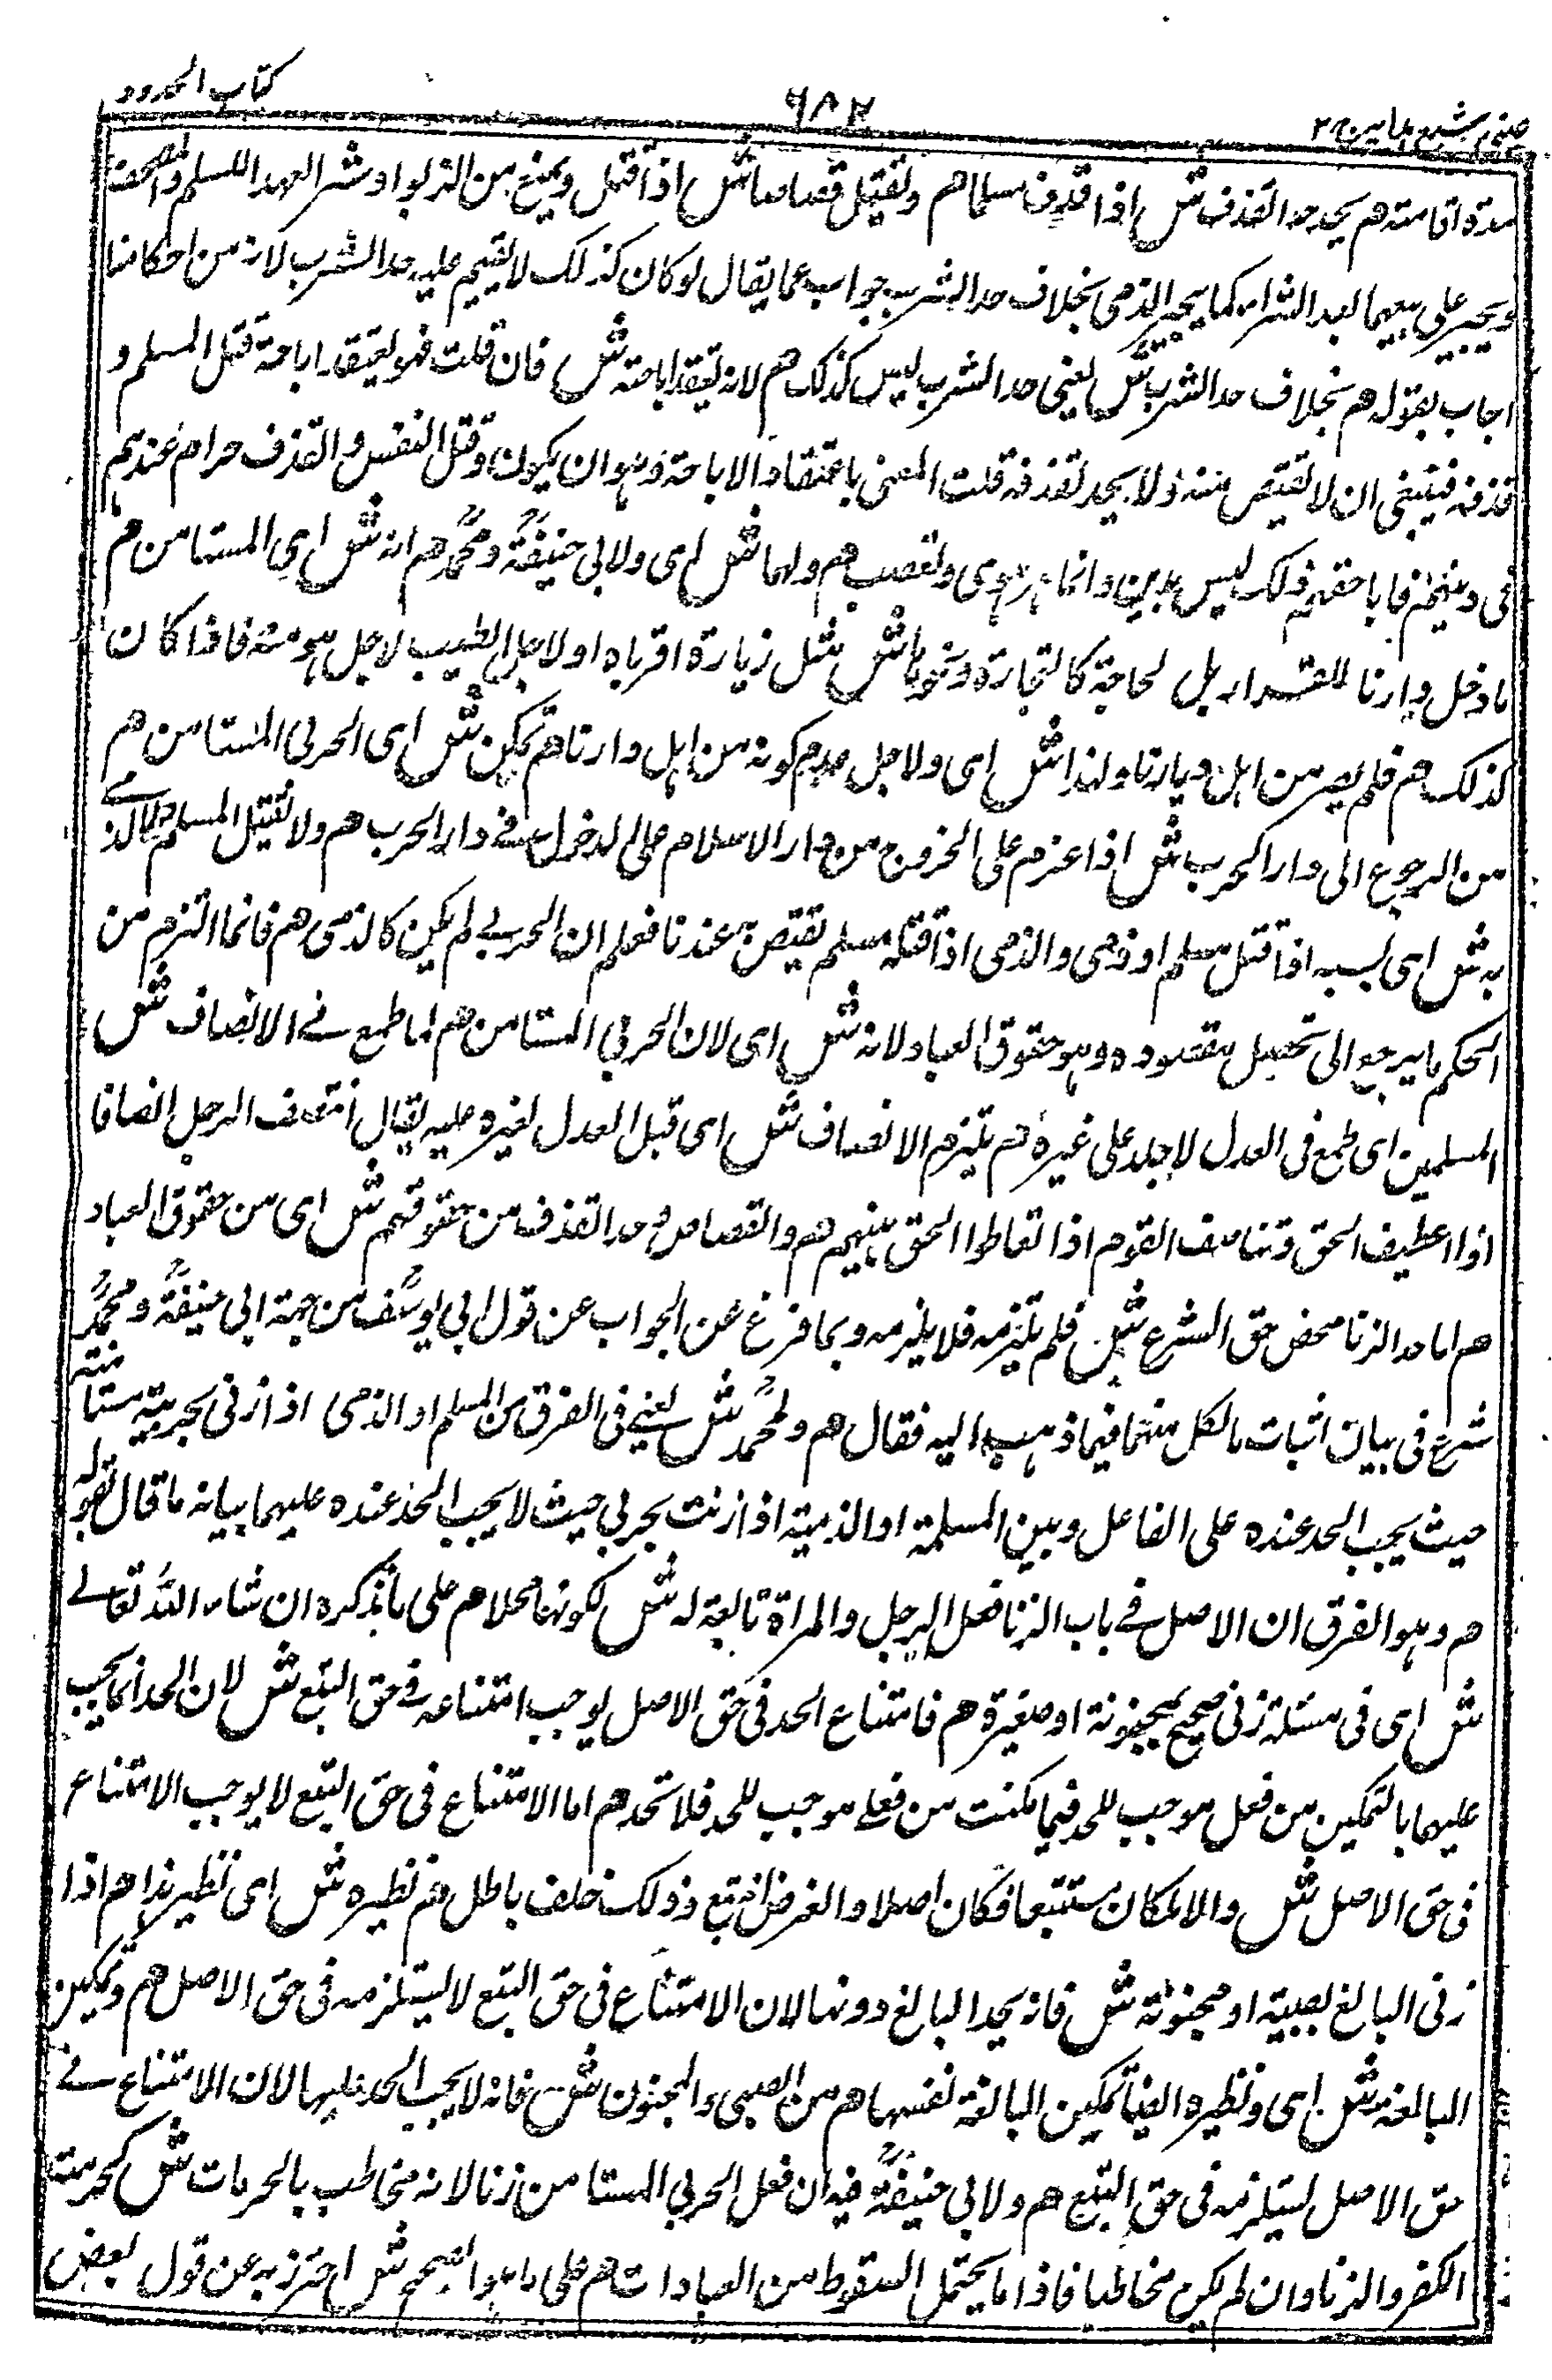 كتاب الحدود
٦٨٢
عيني شرح هدايه ج٢
مدة اقامته هم يحد حد القذف ش اذا قذف مسلما هم ويقتل قصاصا ش اذا قتل ويمنع من الربوا وشر العبد المسلم والمصحف
ويجبر على بيعهما بعد الشراء كما يجبر الذمي بخلاف حد الشرب جواب عما يقال لو كان كذلك لا يقيم عليه حد الشرب لانه من احكامنا
اجاب بقوله هم بخلاف حد الشرب ش يعني حد الشرب ليس كذلك هم لانه يعتقد اباحته ش فان قلت فهو يعتقد اباحة قتل المسلم و
قذفه فينبغي ان لا يقتص منه ولا يحد لقذفه قلت المعنى باعتقاد الاباحة وهو ان يكون وقتل النفس والقذف حرام عندهم
في دينهم فاباحتهم ذلك ليس بدين وانما هو هوى وتعصب هم ولهما ش اى ولابي حنيفة ومحمد هم انه ش اى المستامن هم
ما دخل دارنا للقرار بل لحاجة كالتجارة ونحوها ش مثل زيارة اقرباه او لاجل الطبيب لاجل مرضه فاذا كان
كذلك هم فلم يصر من اهل ديارنا ولهذا ش اى ولاجل عدم كونه من اهل دارنا هم يمكن ش اى الحربي المستامن هم
من الرجوع الى دار الحرب ش اذا عزم على الخروج من دار الاسلام على الدخول في دار الحرب هم ولا يقتل المسلم ولا الذمي
به ش اى بسببه اذا قتل مسلم او ذمي والذمي اذا قتله مسلم يقتص به عندنا فعلم ان الحربي لم يكن كالذمي هم فانما التزم من
الحكم ما يرجع الى تحصيل مقصوده وهو حقوق العباد لانه ش اى لان الحربي المستامن هم لما طمع في الانصاف ش
المسلمين اى طمع في العدل لاجله على غيره هم يلتزم الانصاف ش اى قبل العدل لغيره عليه يقال انصف الرجل انصافا
اذا اعطيف الحق وتناصف القوم اذا تعاطوا الحق بينهم هم والقصاص وحد القذف من حقوقهم ش اى من حقوق العباد
هم اما حد الزنا محض حق الشرع ش فلم يلتزمه فلا يلزمه وبما فرغ عن الجواب عن قول ابي يوسف من جهة ابي حنيفة ومحمد
شرع في بيان اثبات ما لكل منهما فيما ذهب اليه فقال هم ولمحمد ش يعني في الفرق بين المسلم او الذمي اذا زنى بحربية مستامنة
حيث يجب الحد عنده على الفاعل وبين المسلمة او الذمية اذا زنت بحربي حيث لا يجب الحد عنده عليهما بيانه ما قال بقوله
هم وهو الفرق ان الاصل في باب الزنا فعل الرجل والمراة تابعة له ش لكونها محلا هم على ما نذكره ان شاء الله تعالى
ش اى في مسئلة زنى صحيح بمجنونة او صغيرة هم فامتناع الحد في حق الاصل يوجب امتناعه في حق التبع ش لان الحد انما يجب
عليها بالتمكين من فعل موجب للحد فيما مكنت من فعل موجب للحد فلا تحد هم اما الامتناع في حق التبع لا يوجب الامتناع
في حق الاصل ش والا لكان مستتبعا فكان اصلا والغرض انه تبع وذلك خلف باطل هم نظيره ش اى نظير هذا هم اذا
زنى البالغ بصبية او مجنونة ش فانه يحد البالغ دونها لان الامتناع في حق التبع لا يستلزمه في حق الاصل هم وتمكين
البالغة ش اى ونظيره ايضا تمكين البالغة نفسها هم من الصبي والمجنون ش فانه لا يجب الحد عليها لان الامتناع في
حق الاصل يستلزمه في حق التبع هم ولابي حنيفة فيه ان فعل الحربي المستامن زنا لانه مخاطب بالحرمات ش كحرمة
الكفر والزنا وان لم يكن مخاطبا فاذا ما يحتمل السقوط من العبادات هم على ما هو الصحيح ش احترز به عن قول بعض